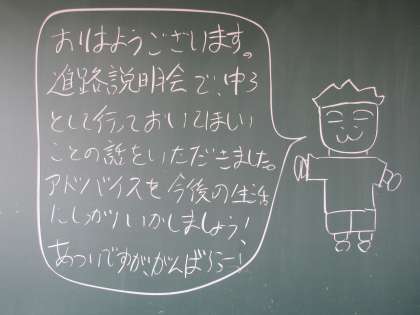 おはようございます。
進路説明会で、中3
として行っておいてほしい
ことの話をいただきました。
アドバイスを今後の生活
にしっかりいかしましょう!
あついですが、がんばろうー!